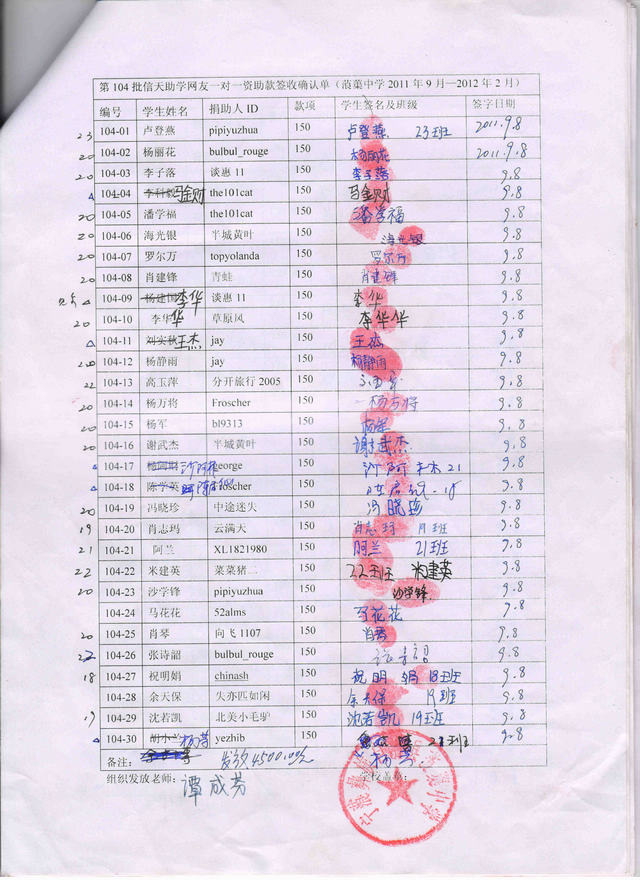 第104批信天助学网友一对一资助款签收确认单（蒗蕖中学2011年9月—2012年2月）
编号 学生姓名 捐助人ID 款项 学生签名及班级 签字日期
23 104-01 卢登燕 pipiyuzhua 150 卢登燕 23班 2011.9.8
20 104-02 杨丽花 bulbul_rouge 150 杨丽花 2011.9.8
20 104-03 李子落 谈惠11 150 李子落 9.8
104-04 马金财 the101cat 150 马金财 9.8
20 104-05 潘学福 the101cat 150 潘学福 9.8
20 104-06 海光银 半城黄叶 150 海光银 9.8
20 104-07 罗尔万 topyolanda 150 罗尔万 9.8
20 104-08 肖建锋 青蛙 150 肖建锋 9.8
104-09 李华 谈惠11 150 李华 9.8
20 104-10 李华华 草原风 150 李华华 9.8
104-11 王杰 jay 150 王杰 9.8
20 104-12 杨静雨 jay 150 杨静雨 9.8
22 104-13 高玉萍 分开旅行2005 150 9.8
20 104-14 杨万将 Froscher 150 杨万将 9.8
20 104-15 杨军 bl9313 150 杨军 9.8
20 104-16 谢武杰 半城黄叶 150 谢武杰 9.8
104-17 george 150 沙阿 21 9.8
104-18 froscher 150 18 9.8
20 104-19 冯晓珍 中途迷失 150 冯晓珍 9.8
19 104-20 肖志玛 云满天 150 肖志玛 班 9.8
21 104-21 阿兰 XL1821980 150 阿兰 21班 9.8
22 104-22 米建英 菜菜猪二 150 22班 米建英 9.8
20 104-23 沙学锋 pipiyuzhua 150 沙学锋 9.8
104-24 马花花 52alms 150 马花花 9.8
20 104-25 肖琴 向飞1107 150 肖琴 9.8
22 104-26 张诗韶 bulbul_rouge 150 9.8
18 104-27 祝明娟 chinash 150 祝明娟 18班 9.8
104-28 余天保 失亦匹如闲 150 余天保 19班 9.8
19 104-29 沈若凯 北美小毛驴 150 沈若凯 19班 9.8
104-30 杨芳 yezhib 150 班 9.8
备注： 发放4500.00元 杨芳
组织发放老师： 谭成芬 学校盖章：